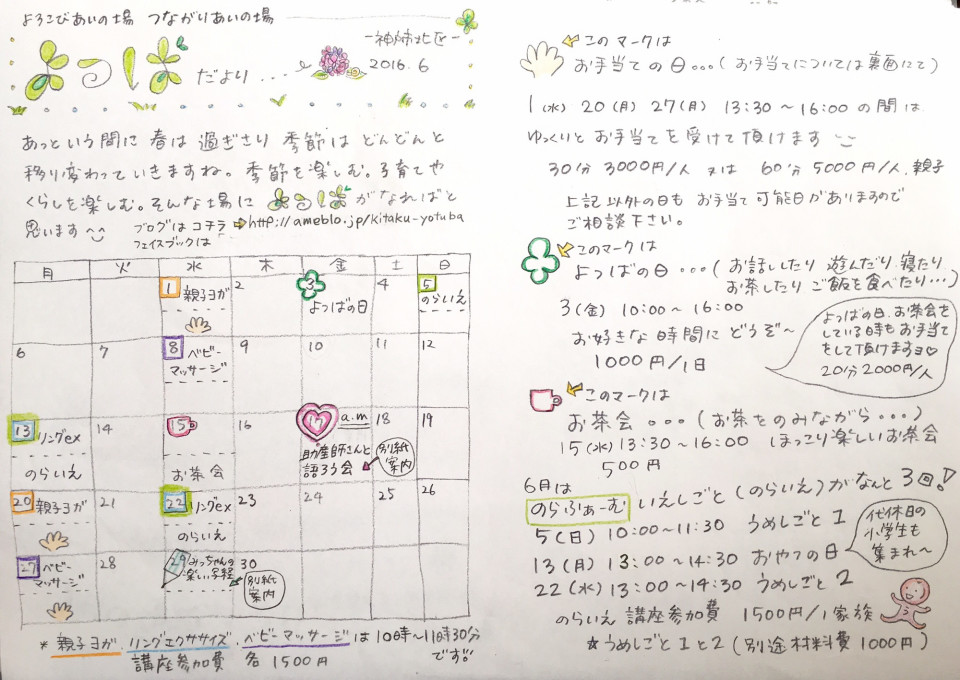 よろこびあいの場 つながりあいの場
よつば だより...
-神姉北区-
2016.6
あっという間に 春は 過ぎさり 季節は どんどんと
移り変わっていきますね。季節を楽しむ。子育てや
くらしを楽しむ。そんな場に よつば がなればと
思います
ブログは コチラ ⇒http://ameblo.jp/kitaku-yotuba
フェイスブックは
月 火 水 木 金 土 日
1 親子ヨガ 2 3 よつばの日 4 5 のらいえ
6 7 8 ベビーマッサージ 9 10 11 12
13 リングex のらいえ 14 15 お茶会 16 17 a.m 助産師さんと語ろう会 別紙案内 18 19
20 親子ヨガ 21 22 リングex のらいえ 23 24 25 26
27 ベビーマッサージ 28 29 みっちゃんの楽しい写経 別紙案内 30
*親子ヨガ.リングエクササイズ.ベビーマッサージは10時〜11時30分
講座参加費 各1500円 です!!
このマークは
お手当ての日...(お手当てについては裏面にて)
1(水) 20(月) 27(月) 13:30〜16:00 の間は
ゆっくりと お手当てを 受けて 頂けます
30分 3000円/人 又は 60分 5000円/人.親子
上記以外の日も お手当て可能日がありますので
ご相談下さい。
このマークは
よつばの日...(お話ししたり 遊んだり 寝たり
お茶したり ご飯を食べたり...)
3(金) 10:00〜16:00
お好きな時間に どうぞ〜
1000円/1日
よつばの日.お茶会を
している時もお手当て
をして頂けますョ♡
20分2000円/人
このマークは
お茶会...(お茶をのみながら...)
15(水)13:30〜16:00 ほっこり楽しいお茶会
500円
6月は
のらふぁーむ いえしごと(のらいえ)がなんと3回!
5(日)10:00〜11:30 うめしごと1
13(月)13:00〜14:30 おやつの日
22(水)13:00〜14:30 うめしごと2
代休日の
小学生も
集まれ〜
のらいえ 講座参加費 1500円/1家族
☆うめしごと1と2(別途材料費1000円)